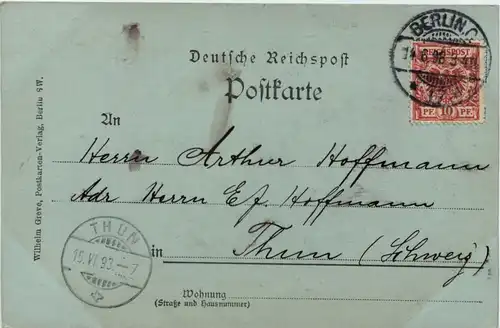 BERLIN
14.6.98.
REICHSPOST
10 PF. 10 PF.
Deutsche Reichspost
Postkarte
An
Herrn Arthur Hoffmann
Adr Herrn Ef. Hoffmann
in Thun (Schweiz)
THUN
Wohnung
(Straße und Hausnummer)
Wilhelm Greve, Postkarten-Verlag, Berlin SW.